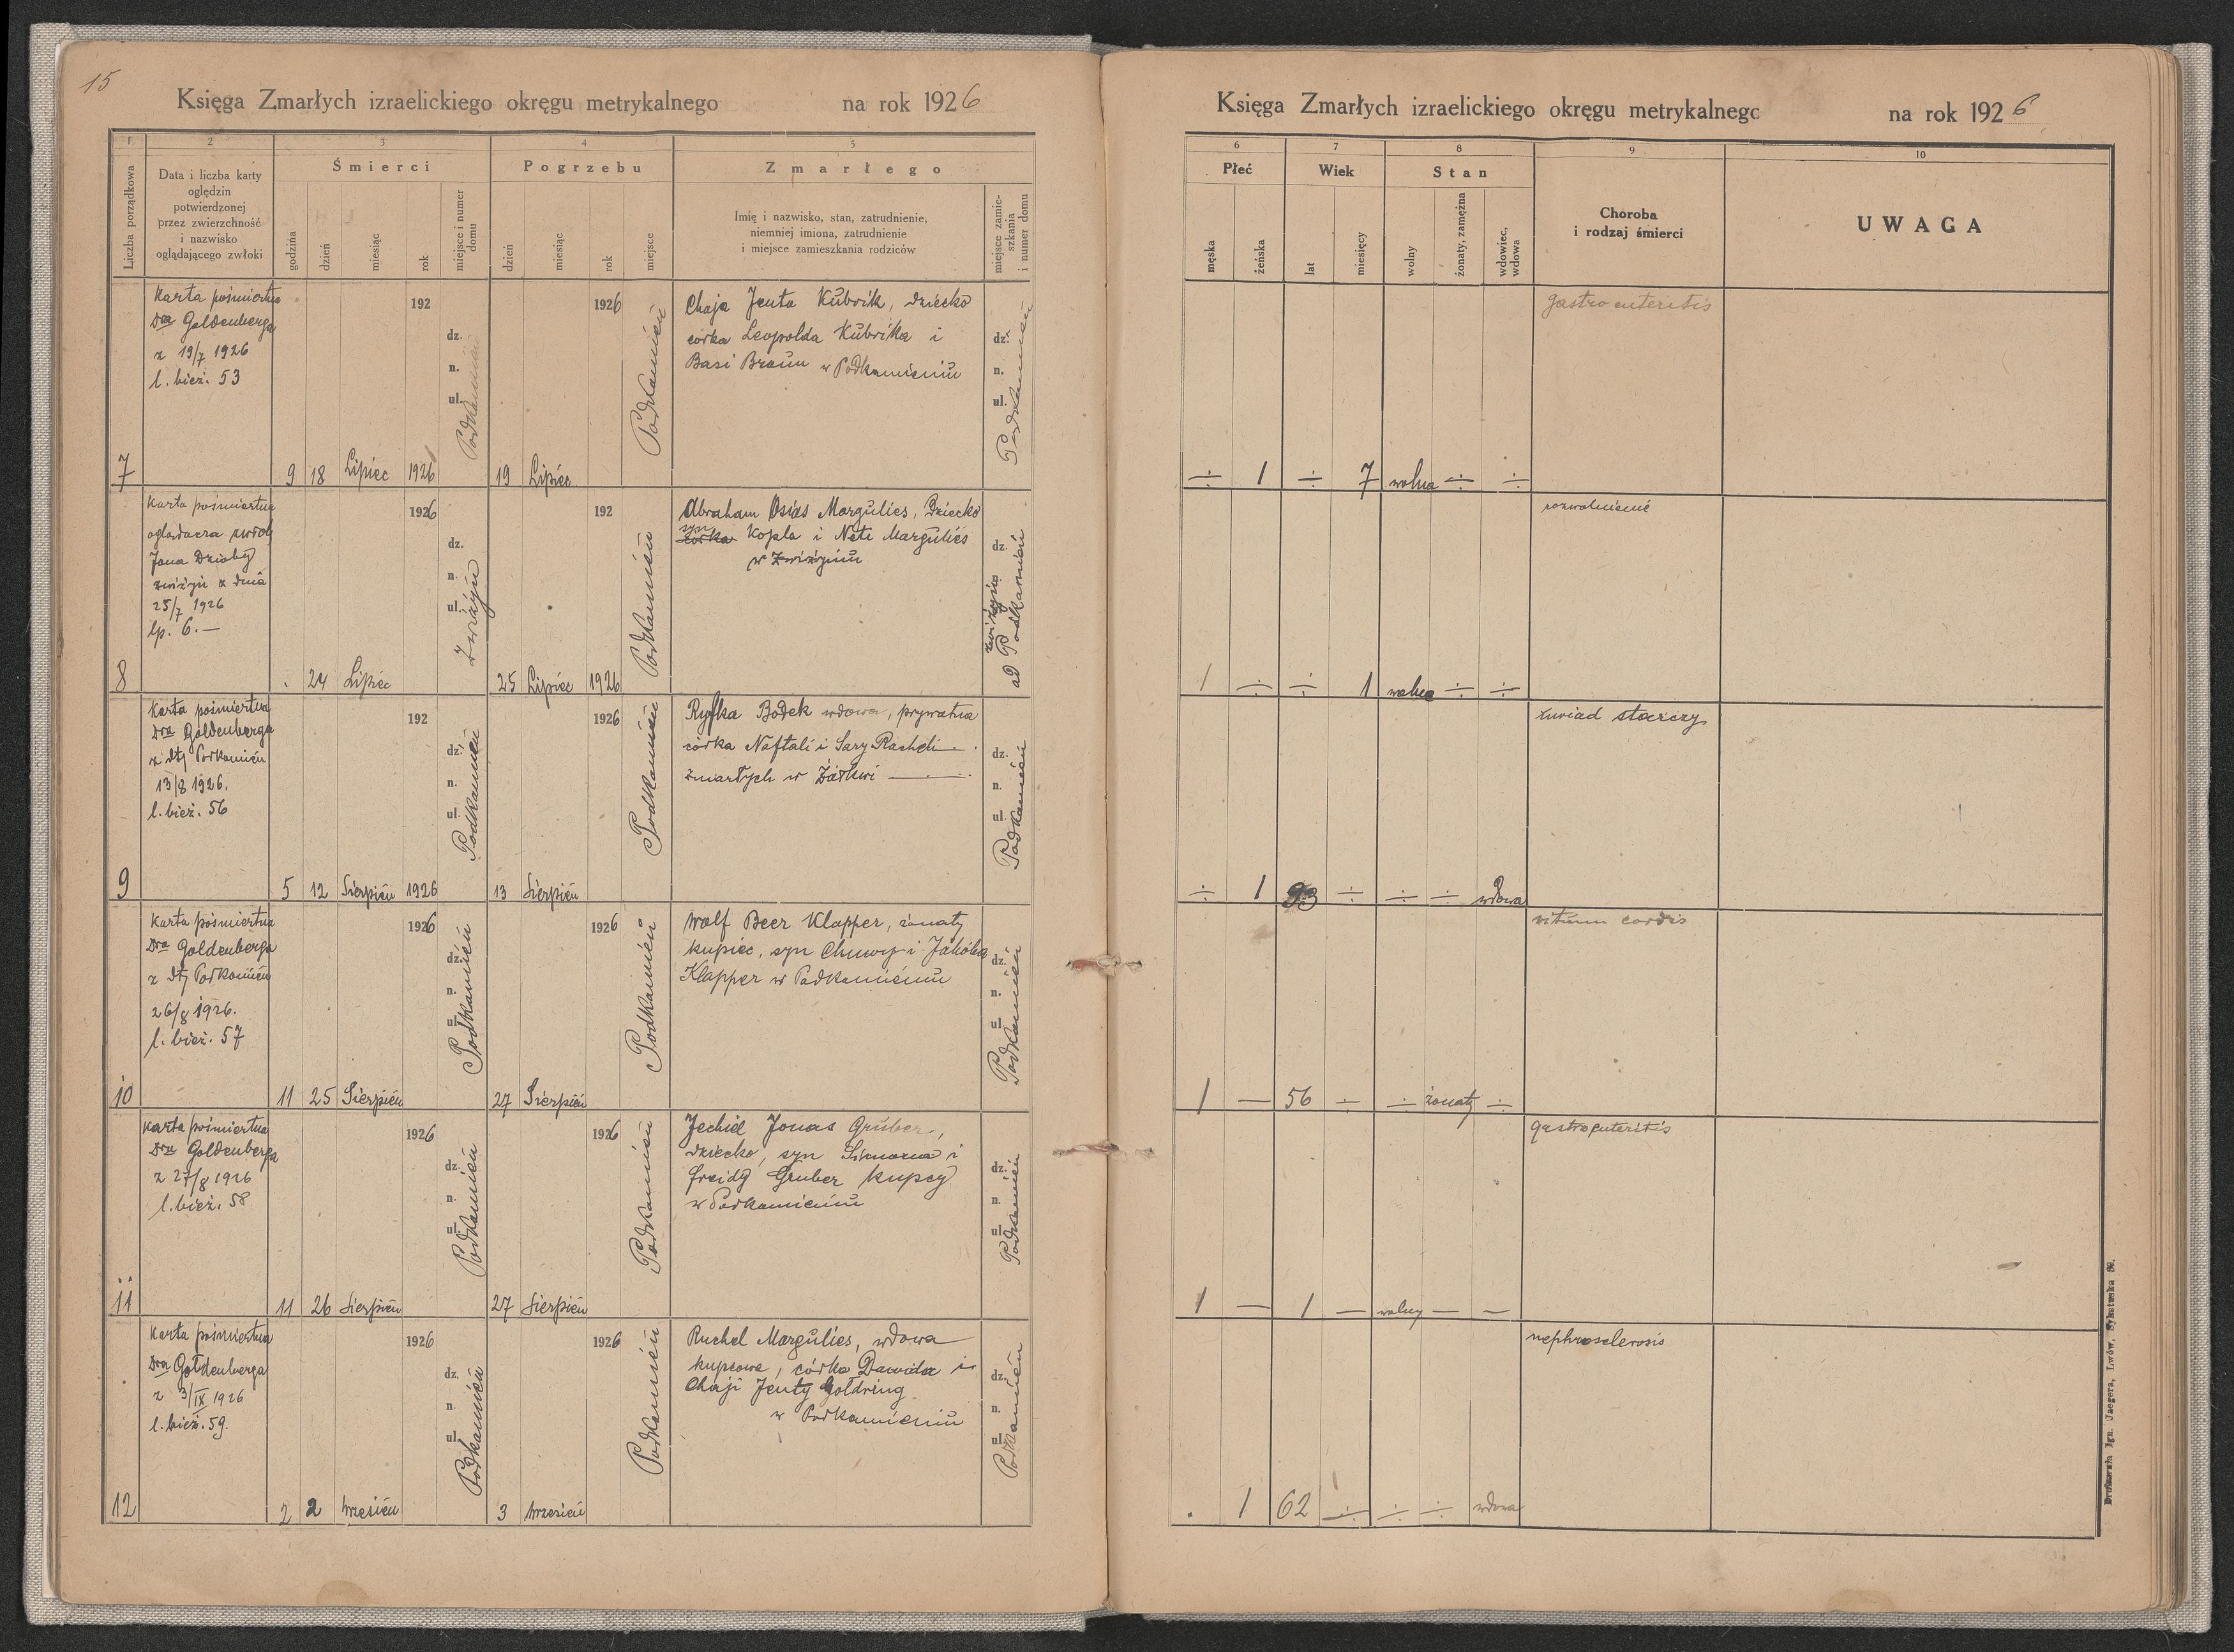 15
Księga Zmarłych izraelickiego okręgu metrykalnego na rok 1926
1 2 3 4 5
Liczba porządkowa
Data i liczba karty
oględzin
potwierdzonej
przez zwierzchność
i nazwisko
oglądającego zwłoki
Śmierci
godzina dzień miesiąc rok miejsce i numer domu
Pogrzebu
dzień miesiąc rok miejsce
Zmarłego
Imię i nazwisko, stan, zatrudnienie,
niemniej imiona, zatrudnienie
i miejsce zamieszkania rodziców
miejsce zamie-
szkania
i numer domu
Karta pośmiertna
Dra Goldenberga
z 19/7 1926
l. bież. 53
192
dz.
n.
ul.
Podkamień
1926
Podkamień
Chaja Jenta Kubrik, dziecko
córka Leopolda Kubrika i
Basi Braun w Podkamieniu
dz.
n.
ul.
Podkamień
7 9 18 Lipiec 1926 19 Lipiec
Karta pośmiertna
oglądacza zwłok
Jana
Zwiżyń z dnia
25/7 1926
lp. 6.—
1926
dz.
n.
ul.
Zwiżyń
192
Podkamień
Abraham Osias Margulies, Dziecko
syn
córka Kopla i Neti Margulies
w Zwiżyniu
dz.
Zwiżyń
ad Podkamień
8 24 Lipiec 25 Lipiec 1926
Karta pośmiertna
Dra Goldenberga
z dtj Podkamień
13/8 1926.
l. bież. 56
192
dz.
n.
ul.
Podkamień
1926
Podkamień
Ryfka Bodek wdowa, prywatna
córka Naftali i Sary Racheli
zmarłych w
dz.
n.
ul.
Podkamień
9 5 12 Sierpień 1926 13 Sierpień
Karta pośmiertna
Dra Goldenberga
z dtj Podkamień
26/8 1926.
l. bież. 57
1926
dz.
n.
ul.
Podkamień
1926
Podkamień
Wolf Beer Klapper, żonaty
kupiec, syn Chuwy i Jakóba
Klapper w Podkamieniu
dz.
n.
ul.
Podkamień
10 11 25 Sierpień 27 Sierpień
Karta pośmiertna
Dra Goldenberga
z 27/8 1926
l. bież. 58
1926
dz.
n.
ul.
Podkamień
1926
Podkamień
Jechiel Jonas Gruber,
dziecko, syn Simona i
Freidy Gruber kupcy
w Podkamieniu
dz.
n.
ul.
Podkamień
11 11 26 Sierpień 27 Sierpień
Karta pośmiertna
Dra Goldenberga
z 3/IX 1926
l. bież. 59.
1926
dz.
n.
ul.
Podkamień
1926
Podkamień
Ruchel Margulies, wdowa
kupcowa, córka Dawida i
Chaji Jenty Goldring
w Podkamieniu
dz.
n.
ul.
Podkamień
12 2 2 Wrzesień 3 Wrzesień
Księga Zmarłych izraelickiego okręgu metrykalnego na rok 1926
6 7 8 9 10
Płeć
męska żeńska
Wiek
lat miesięcy
Stan
wolny żonaty, zamężna wdowiec, wdowa
Choroba
i rodzaj śmierci
UWAGA
gastro enteritis
÷ 1 ÷ 7 wolna ÷ ÷
rozwolnienie
1 ÷ ÷ 1 wolne ÷ ÷
uwiąd starczy
÷ 1 93 ÷ ÷ ÷ wdowa
vitium cordis
1 — 56 ÷ ÷ żonaty ÷
gastroenteritis
1 — 1 — wolny — —
nephrosclerosis
1 62 ÷ ÷ ÷ wdowa
Drukarnia Ign. Jaegera, Lwów, Sykstuska